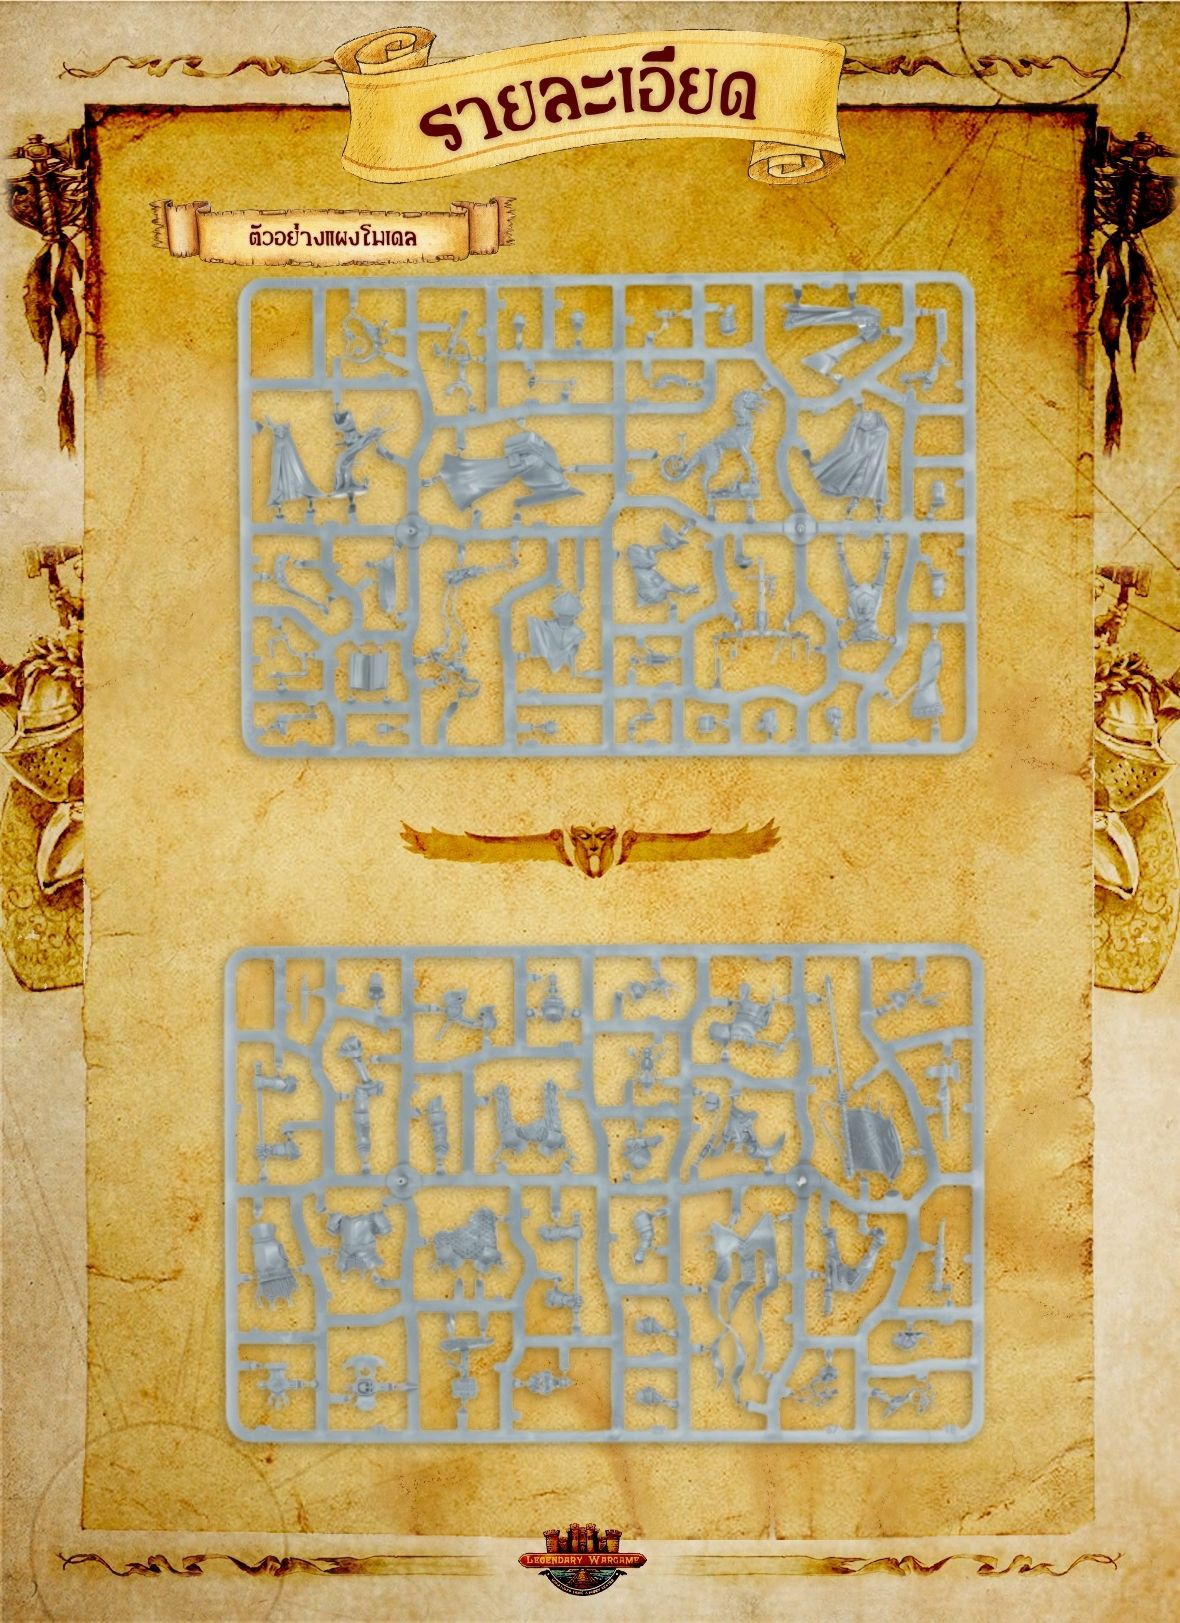 รายละเอียด
ตัวอย่างแผงโมเดล
LEGENDARY WARGAME